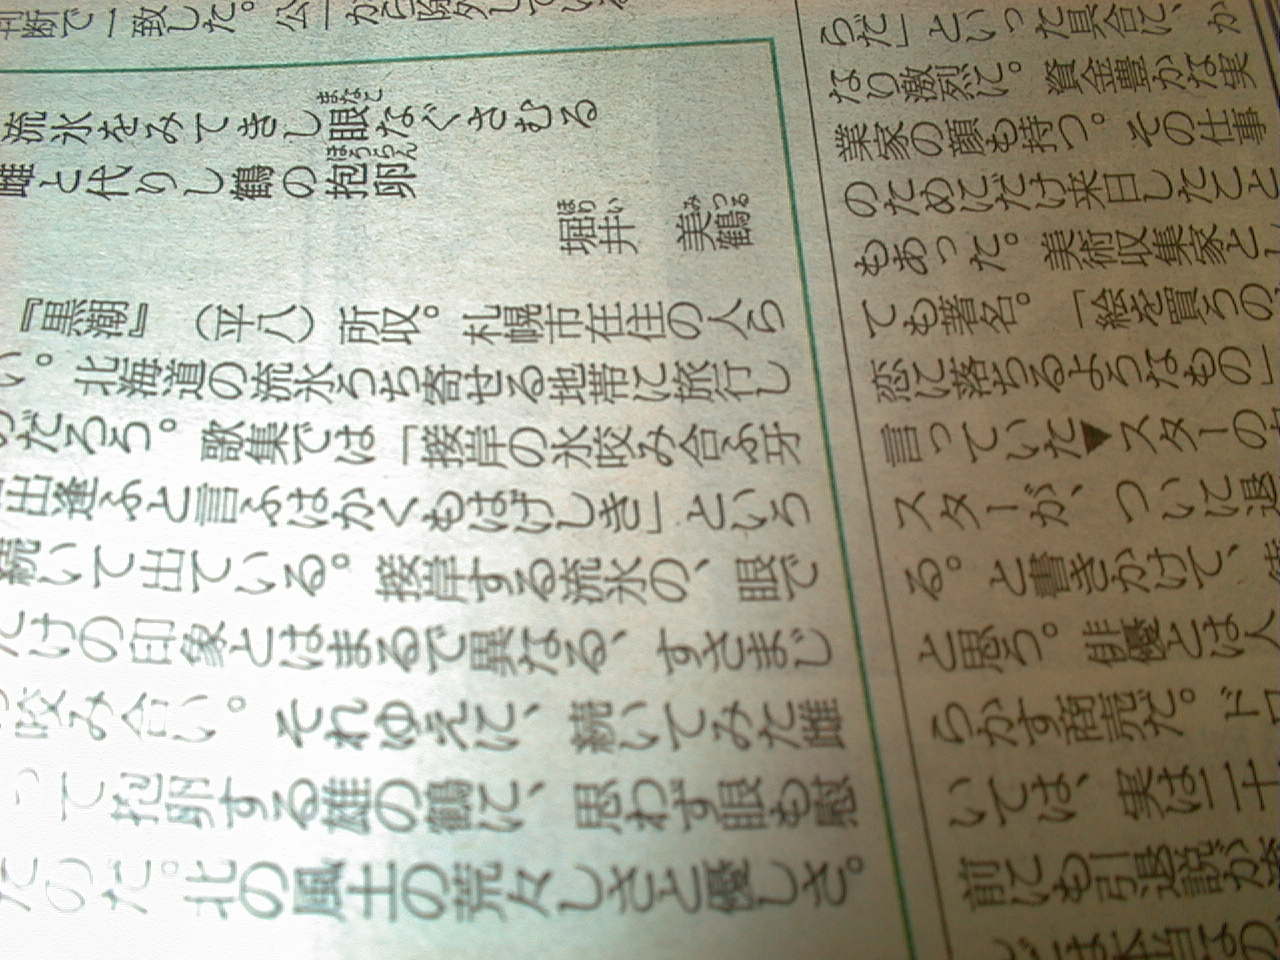 判断で一致した。公
流氷をみてきし眼なぐさむる
まなこ
雌と代りし鶴の抱卵
ほうらん
堀井 美鶴
ほりい みつる
『黒潮』(平八)所収。札幌市在住の人ら
い。北海道の流氷うち寄せる地帯に旅行し
だろう。歌集では「接岸の氷咬み合ふ牙
出逢ふと言ふはかくもはげしき」という
続いて出ている。接岸する流氷の、眼で
けの印象とはまるで異なる、すさまじ
咬み合い。それゆえに、続いてみた雌
って抱卵する雄の鶴に、思わず眼も慰
のだ。北の風土の荒々しさと優しさ。
らだ」といった具合に、か
ない激烈に。資金豊かな実
業家の顔も持つ。その仕事
のためにだけ来日したこと
もあった。美術収集家とし
ても著名。「絵を買うの
恋に落ちるようなもの」
言っていた▼スターの
スターが、ついに退
る。と書きかけて、
と思う。俳優とは人
らかす商売だ。
いては、実は二十
前にも引退説が